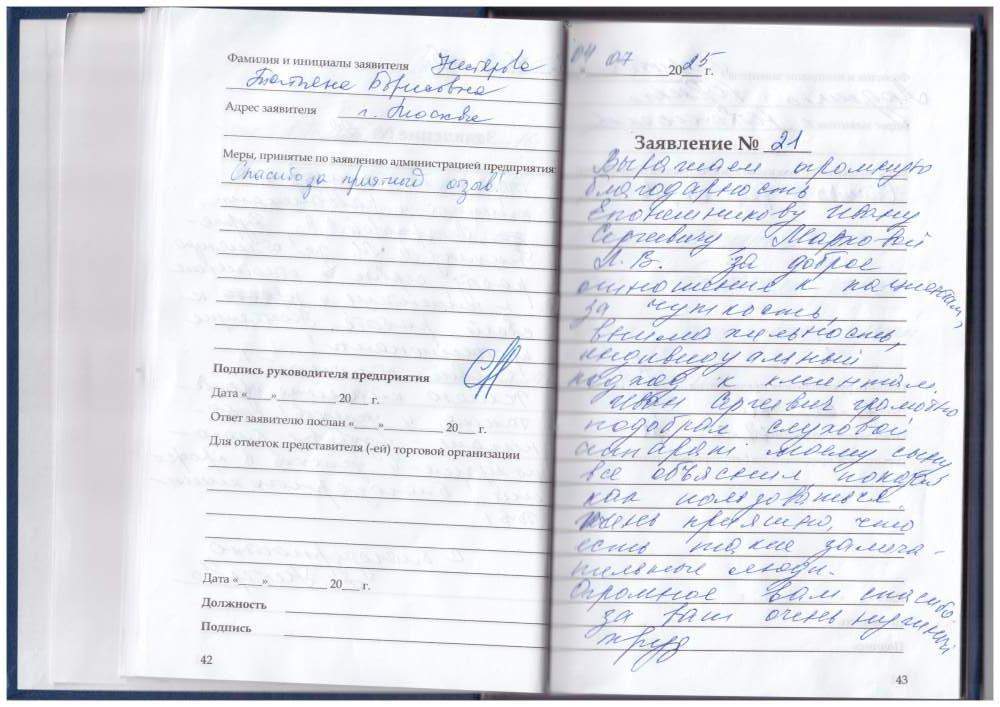 Фамилия и инициалы заявителя Нестерова
Татьяна Борисовна
Адрес заявителя г. Москва
Меры, принятые по заявлению администрацией предприятия:
Спасибо за приятной отзыв!
Подпись руководителя предприятия
Дата «___»__________ 20___ г.
Ответ заявителю послан «___»__________ 20___ г.
Для отметок представителя (-ей) торговой организации
Дата «___»__________ 20___ г.
Должность
Подпись
42
04 07 2025 г.
Заявление № 21
Выражаем огромную
благодарность
Епонешникову Ивану
Сергеевичу, Марковой
Л.В. за доброе
отношение к пациентам,
за чуткость,
внимательность,
индивидуальный
подход к клиентам.
Иван Сергеевич грамотно
подобрал слуховой
аппарат моему сыну
все объяснил показал
как пользоваться.
Очень приятно, что
есть такие замеча-
тельные люди.
Огромное вам спасибо
за ваш очень нужный
труд
43